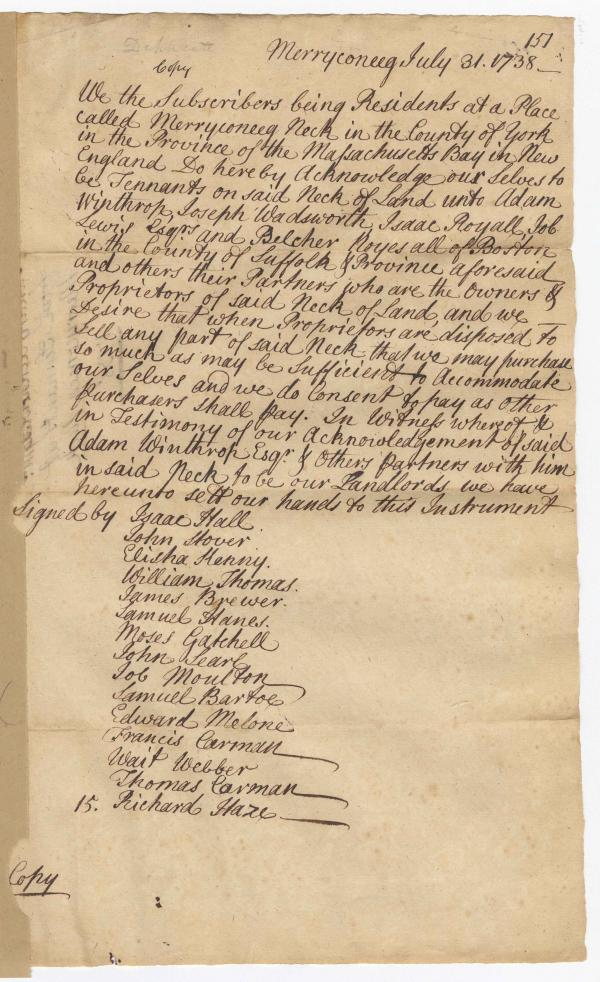 151
Merryconeeg July 31. 1738
Copy
We the Subscribers being Residents at a Place
called Merryconeeg Neck in the County of York
in the Province of the Massachusetts Bay in New
England Do hereby Acknowledge our Selves to
be Tennants on said Neck of Land unto Adam
Winthrop, Joseph Wadsworth, Isaac Royall, Job
Lewis Esqrs and Belcher Noyes all of Boston
in the County of Suffolk & Province aforesaid
and others their Partners who are the Owners &
Proprietors of said Neck of Land and we
Desire that when Proprietors are disposed to
Sell any part of said Neck that we may purchase
so much as may be Sufficient to Accommodate
our Selves and we do Consent to pay as other
Purchasers shall pay. In Witness whereof &
in Testimony of our Acknowledgement of said
Adam Winthrop Esqr. & Others Partners with him
in said Neck to be our Landlords we have
hereunto sett our hands to this Instrument
Signed by Isaac Hall
John Stover
Elisha Henny.
William Thomas.
James Brewer.
Samuel Hanes.
Moses Gatchell
John Searl
Job Moulton
Samuel Bartoe
Edward Melone
Francis Carman
Wait Webber
Thomas Carman
15. Richard Haze
Copy